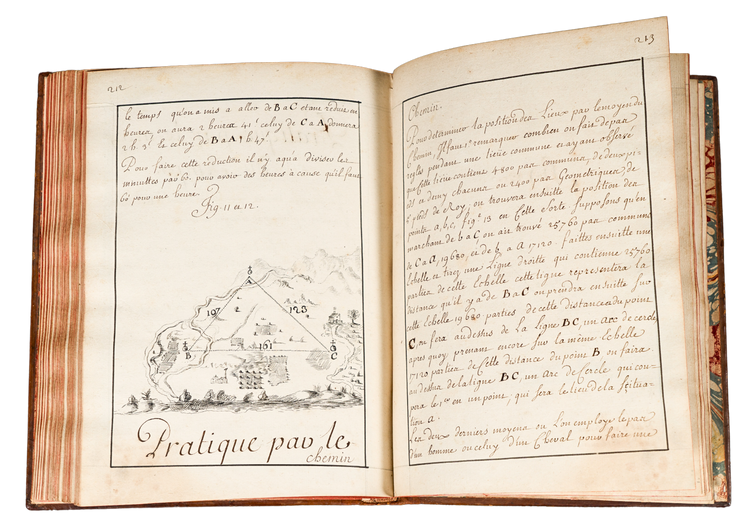 212
le temps qu'on a mis a aller de B a C etant reduit en
heures on aura 2 heures 41' celuy de C a A donnera
2h 3' le celuy de B a A 1h 47'
Pour faire cette reduction il n'y a qu'a diviser les
minuttes par 60. pour avoir des heures a cause qu'il faut
60 pour une heure.
Fig. 11 et 12.
A
107
2
123
B
161
C
Pratique par le
chemin
213
Chemin.
Pour determiner la position des Lieux par le moyen du
Chemin, il faut remarquer combien on fait de pas
reglés pendant une lieüe commune et ayant observé
que cette lieüe contient 4800 pas communs, de deux pi-
eds et demy chacuns ou 2400 pas Geometriques, de
5 pieds de Roy, on trouvera ensuitte la position des
points a, b, c, fig.e 13 en Cette sorte. supposons qu'en
marchant de b a C on ait trouvé 25760 pas communs
de C a A, 19680, et de b a A 17120. faittes ensuitte une
Echelle et tirez une Ligne droitte qui contienne 25760
parties de cette Echelle cette ligne representera la
distance qu'il y a de B a C on prendra ensuitte sur
cette Echelle 19680 parties de cette distance et du point
C, on fera au dessus de la Ligne BC, un arc de cercle
apres quoy prenant encore sur la même Echelle
17120 parties de Cette distance du point B on faira
au dessus de la ligne BC, un arc de Cercle qui cou-
pera le 1er en un point, qui sera le lieu de la situa-
tion a.
Les deux derniers moyens ou L'on employe le pas
d'un homme ou celuy d'un Cheval pour faire une